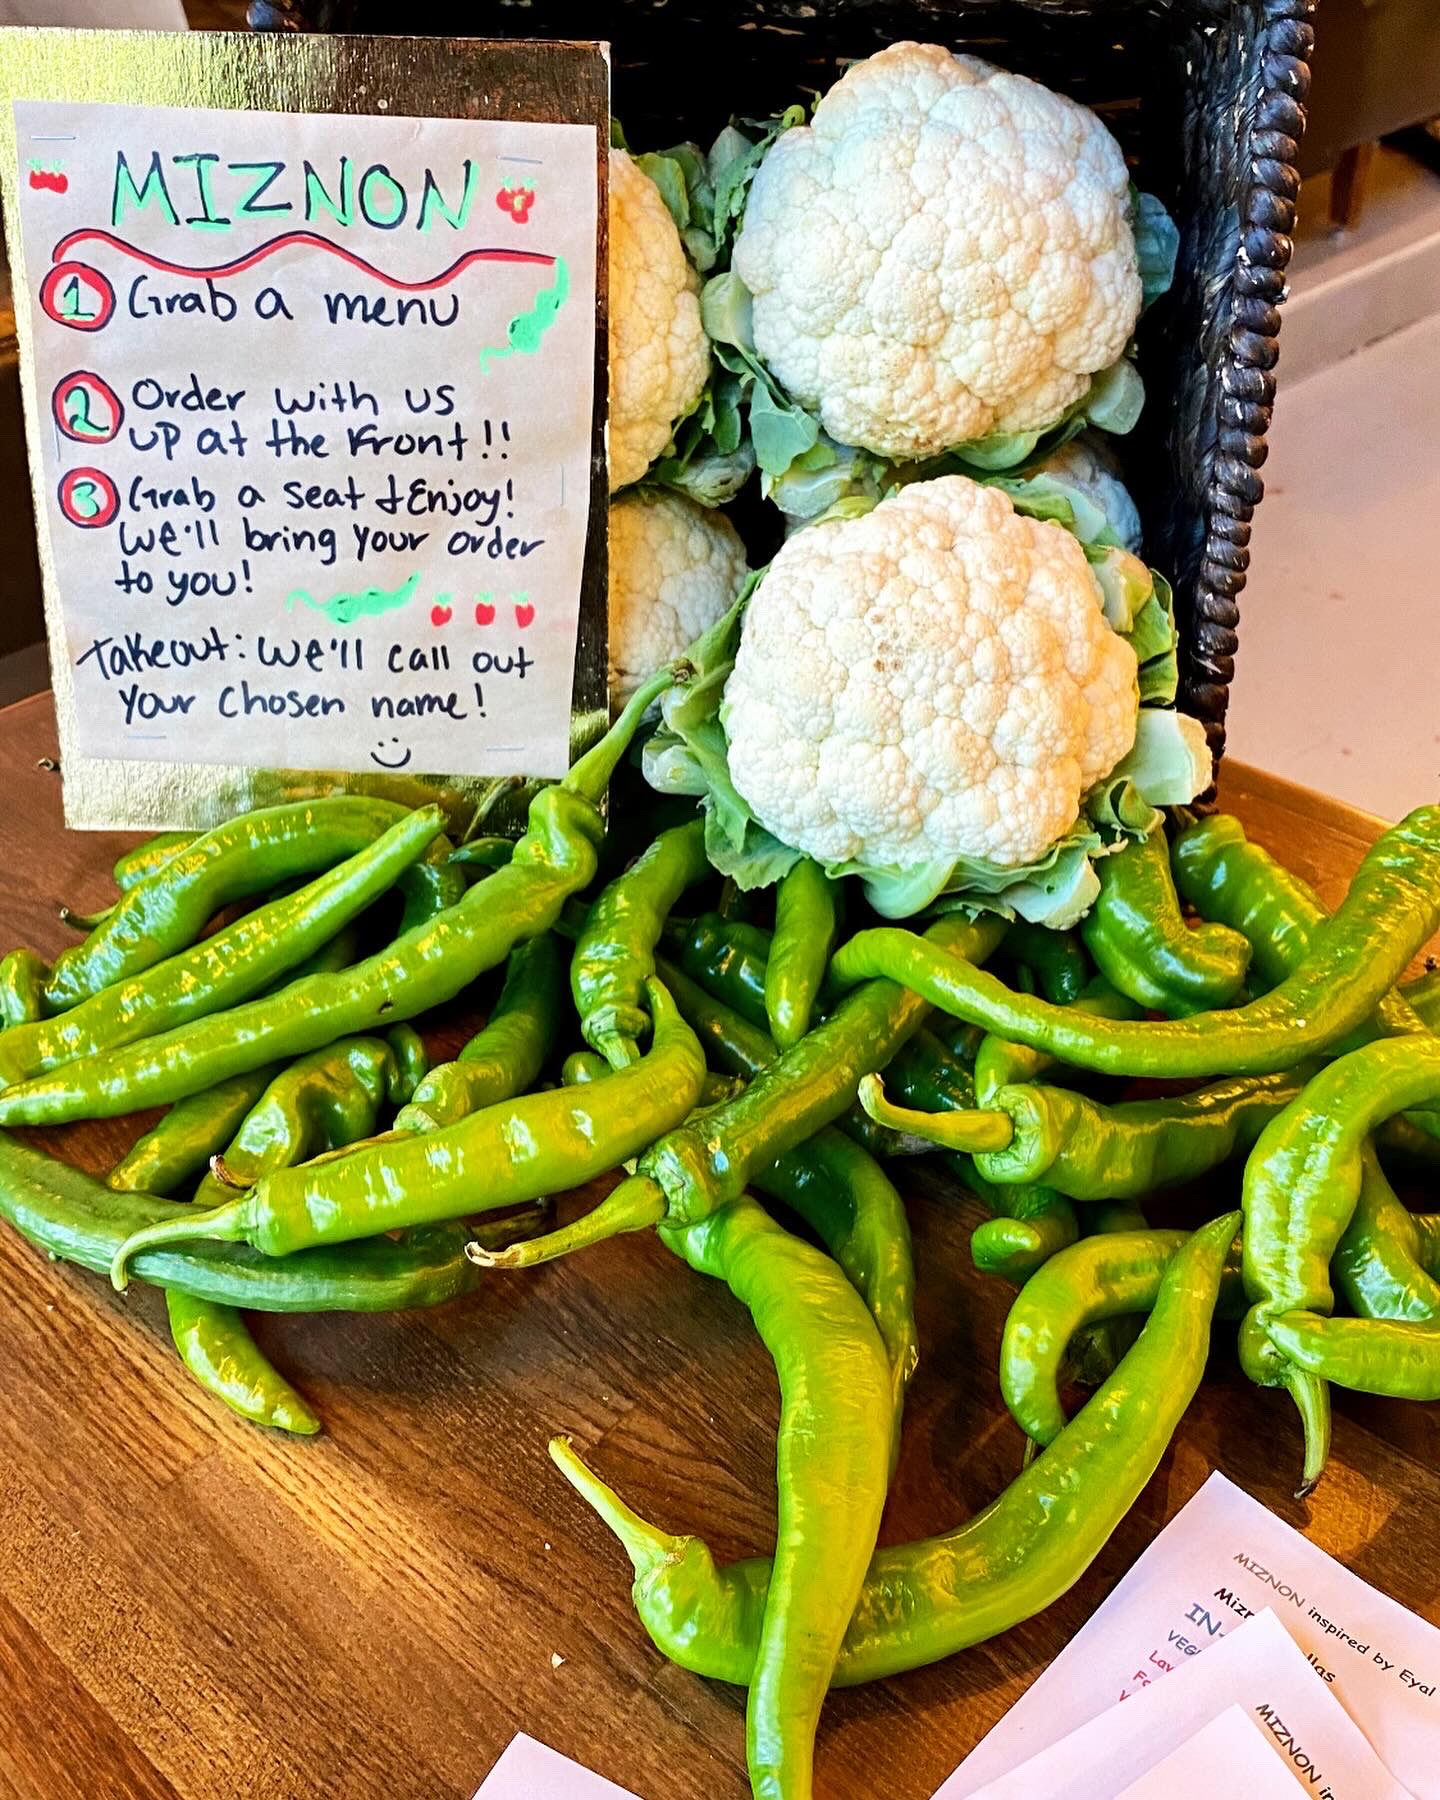 MIZNON
1 Grab a menu
2 Order with us
up at the Front!!
3 Grab a seat + Enjoy!
We'll bring your order
to you!
Takeout: We'll call out
your chosen name!
MIZNON inspired by Eyal
IN-
MIZNON